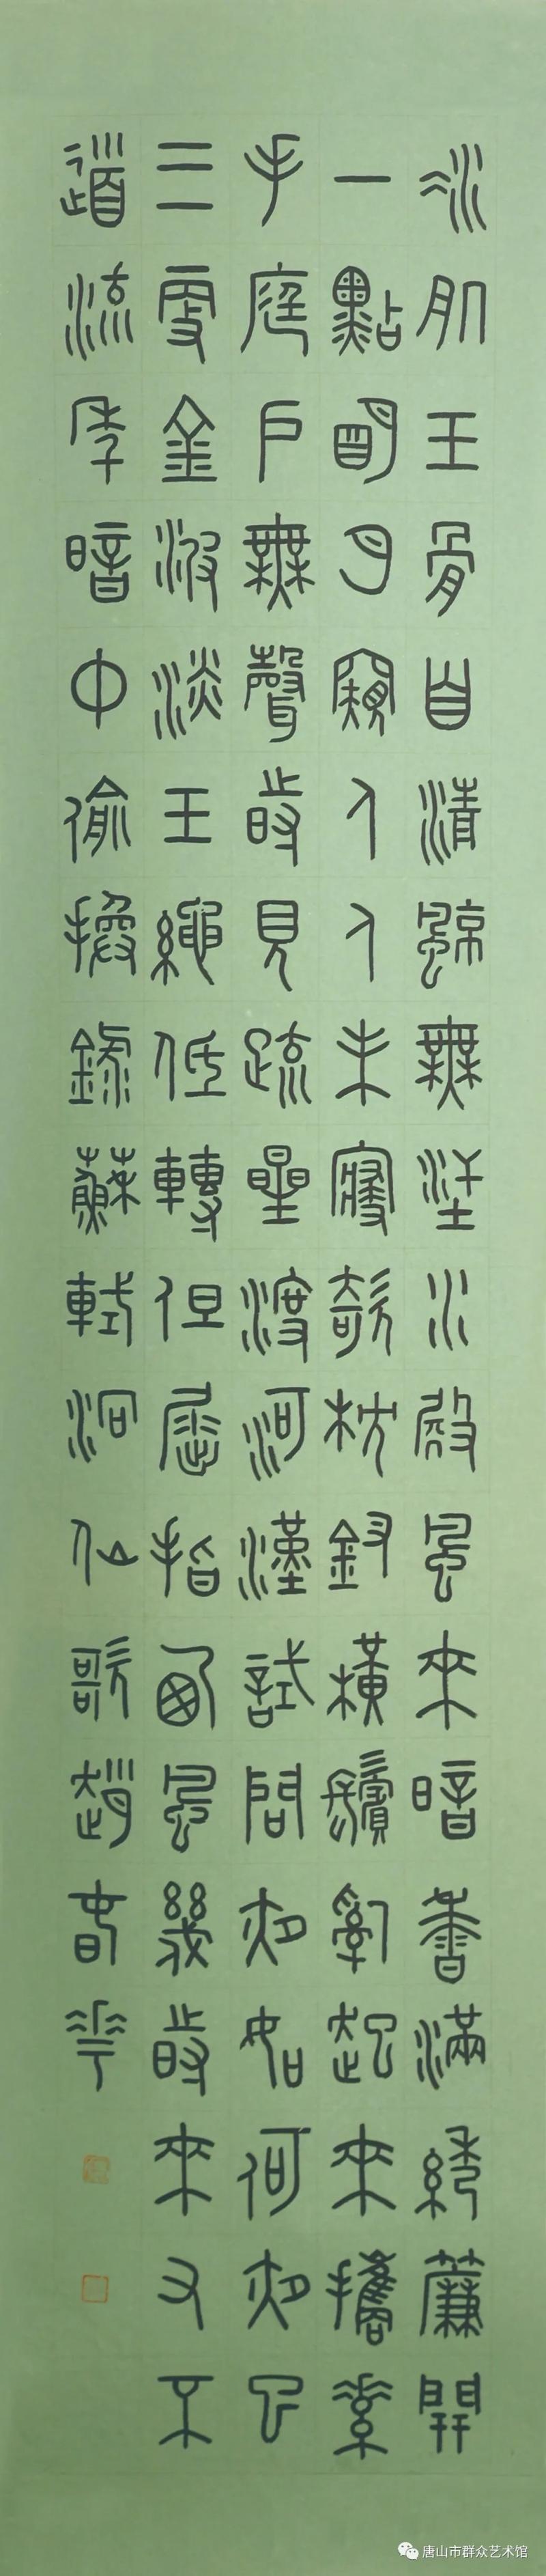 冰肌玉骨自清凉無汗水殿風來暗香滿綉簾開
一點明月窺人人未寢欹枕釵横鬢亂起來攜素
手庭户無聲時見疏星渡河漢試問夜如何夜已
三更金波淡玉繩低轉但屈指西風幾時來又不
道流年暗中偷换録蘇軾洞仙歌趙春華
唐山市群众艺术馆